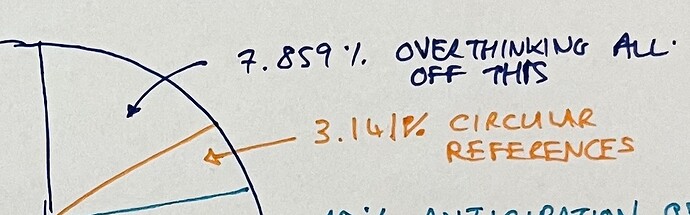 7.859% OVERTHINKING ALL
OFF THIS
3.141% CIRCULAR
REFERENCES